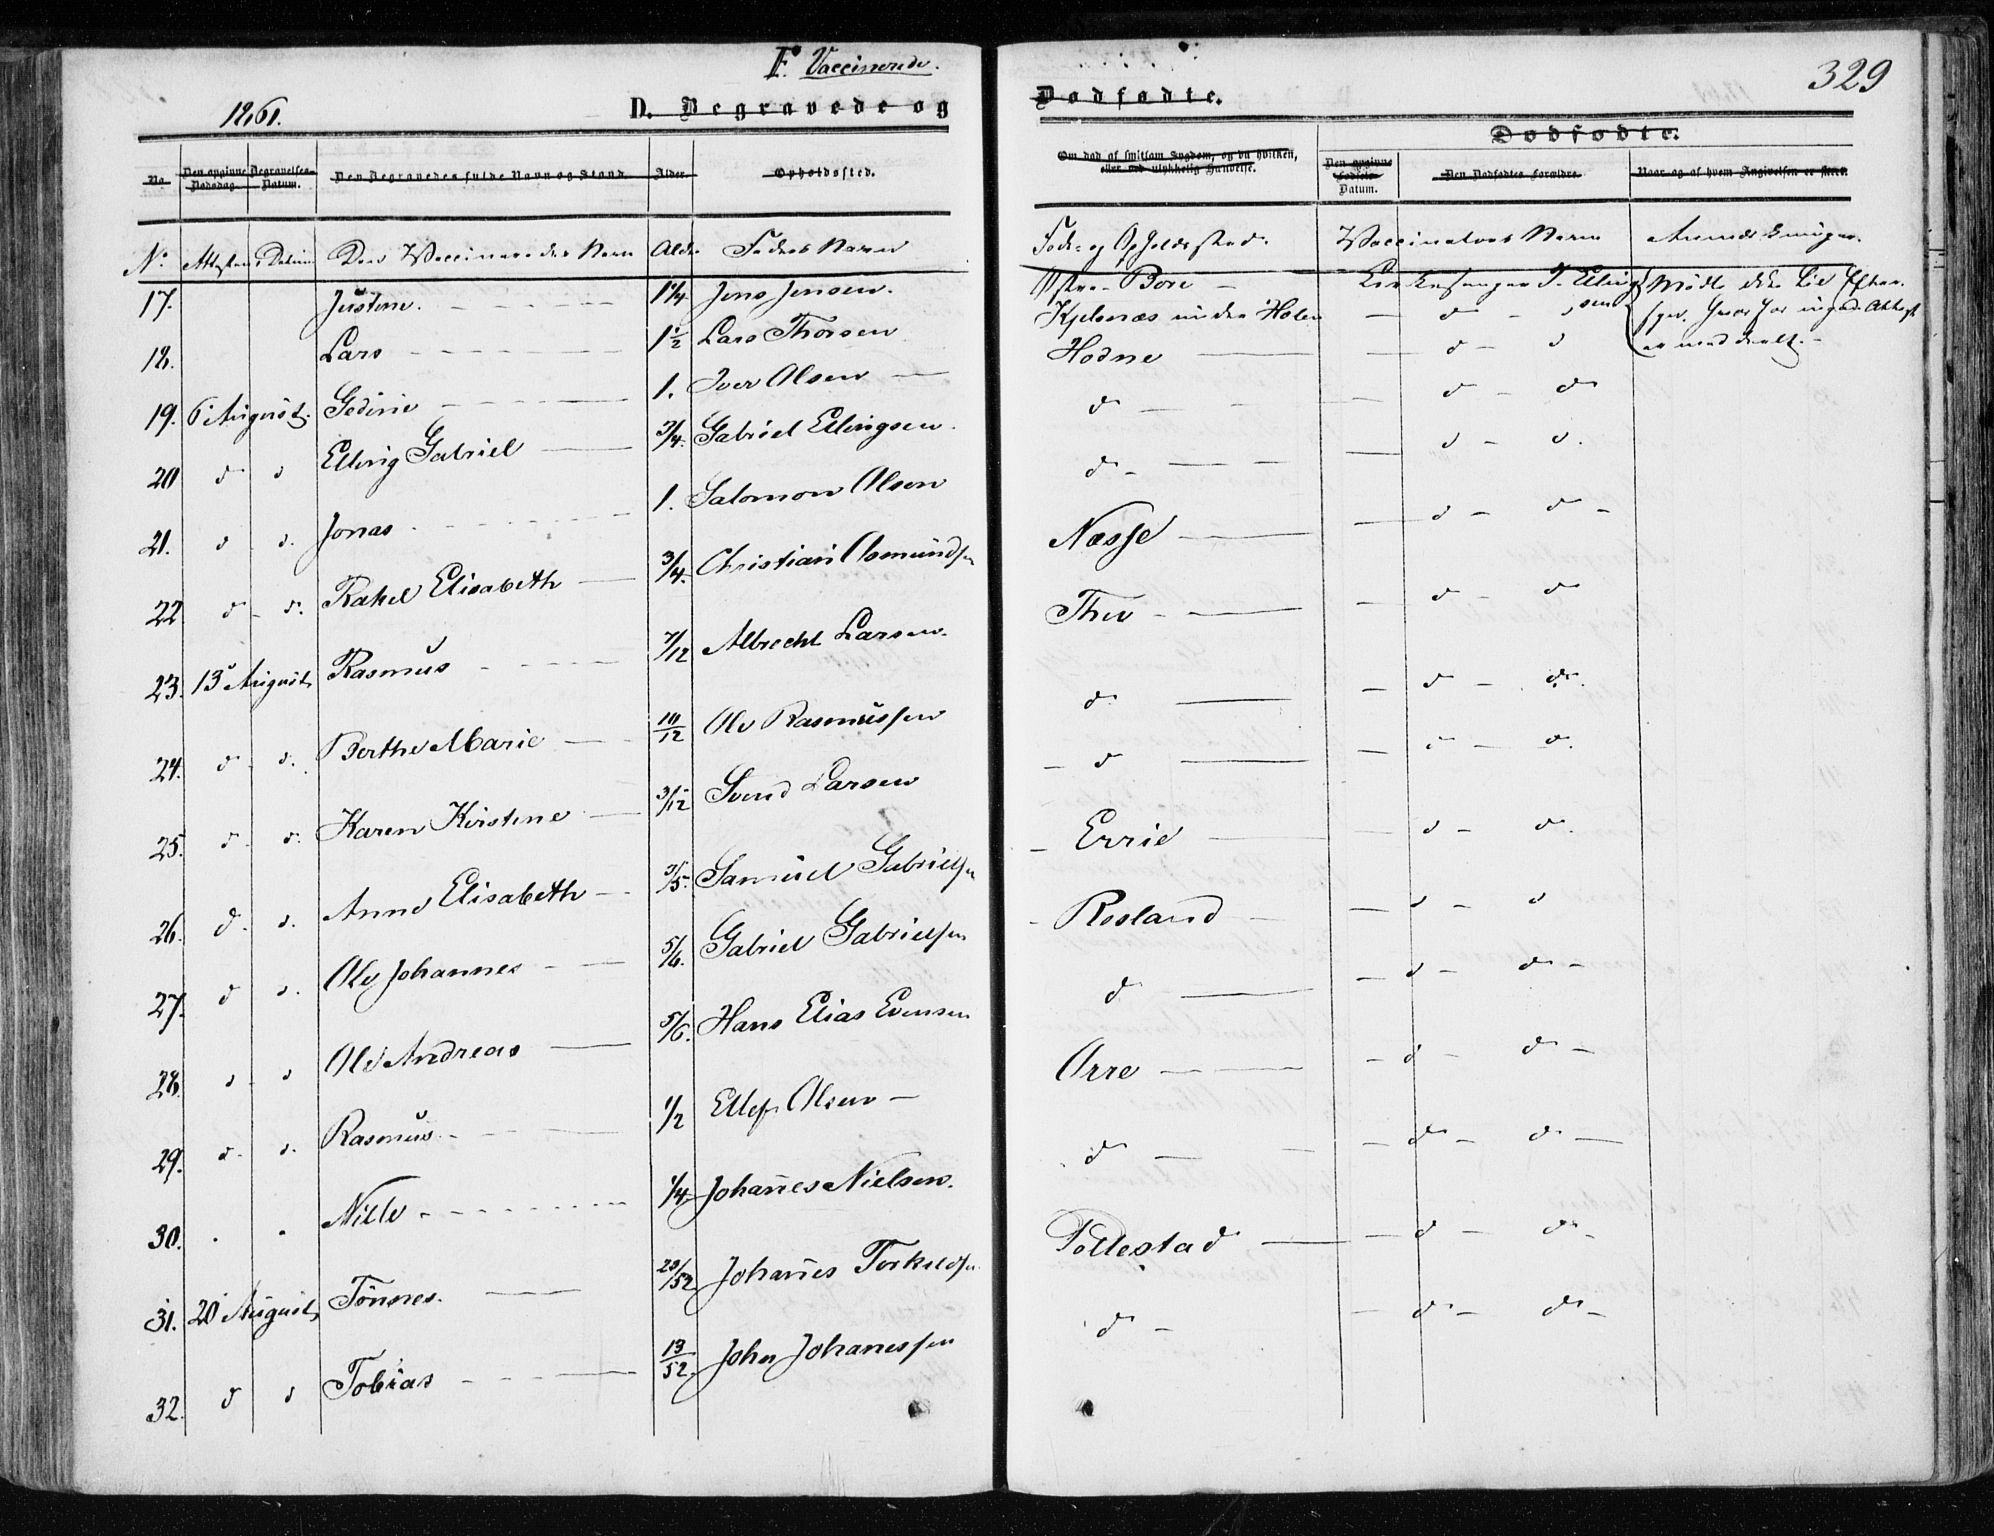 F. Vaccinerede.
1861.
D. Begravede og Dødfødte.
329
Dødfødte.
No. Den opgivne Dødsdag. Begravelses-Datum. Den Begravedes fulde Navn og Stand. Alder. Opholdssted. Om død af smitsom Sygdom, og da hvilken, eller ved ulykkelig Hændelse. Den opgivne Fødsels Datum. Den Dødfødtes Forældre. Naar og af hvem Angivelsen er skeet.
No. Attestens Datum Den Vaccineredes Navn Alder Faders Navn Føde- og Opholdssted. Vaccinateurs Navn Anmærkninger.
17. Justine. 1 1/4 Jens Jensen. Bore Kirkesanger T. Elingsen Mødte ikke til Efter-
18. Lars 1 1/2 Lars Thorsen Hølen d d
syn, hvorfor ingen Attest
er meddeelt.
19. 6 August. Gedine 1. Iver Olsen Hodne d d
20 d d Elling Gabriel 3/4. Gabriel Ellingsen. d d d
21. d d. Jonas 1. Salomon Olsen d d d.
22 d d. Rakel Elisabeth 3/4. Christian Asmundsen Næsse d d
23. 13 August Rasmus 7/12 Albrecht Larsen. Thu d d
24. d d. Berthe Marie 10/12 Ole Rasmussen d d d.
25. d d. Karen Kirstine 3/12 Svend Larsen d d d.
26. d. d. Anne Elisabeth 3/5. Samuel Gabrielsen Errie d d.
27. d d. Ole Johannes 5/6. Gabriel Gabrielsen Rosland d d
28. d d Ole Andreas 5/6. Hans Elias Evensen d d d
29. d. d. Rasmus 1/2 Ellef Olsen Orre d d
30. . . Nille 1/4. Johanes Nielsen. d d d
31. 20 August Tönnes. 20/52 Johanes Torkeldsen Pollestad d d.
32. d d Tobias 13/52. John Johanessen d d d